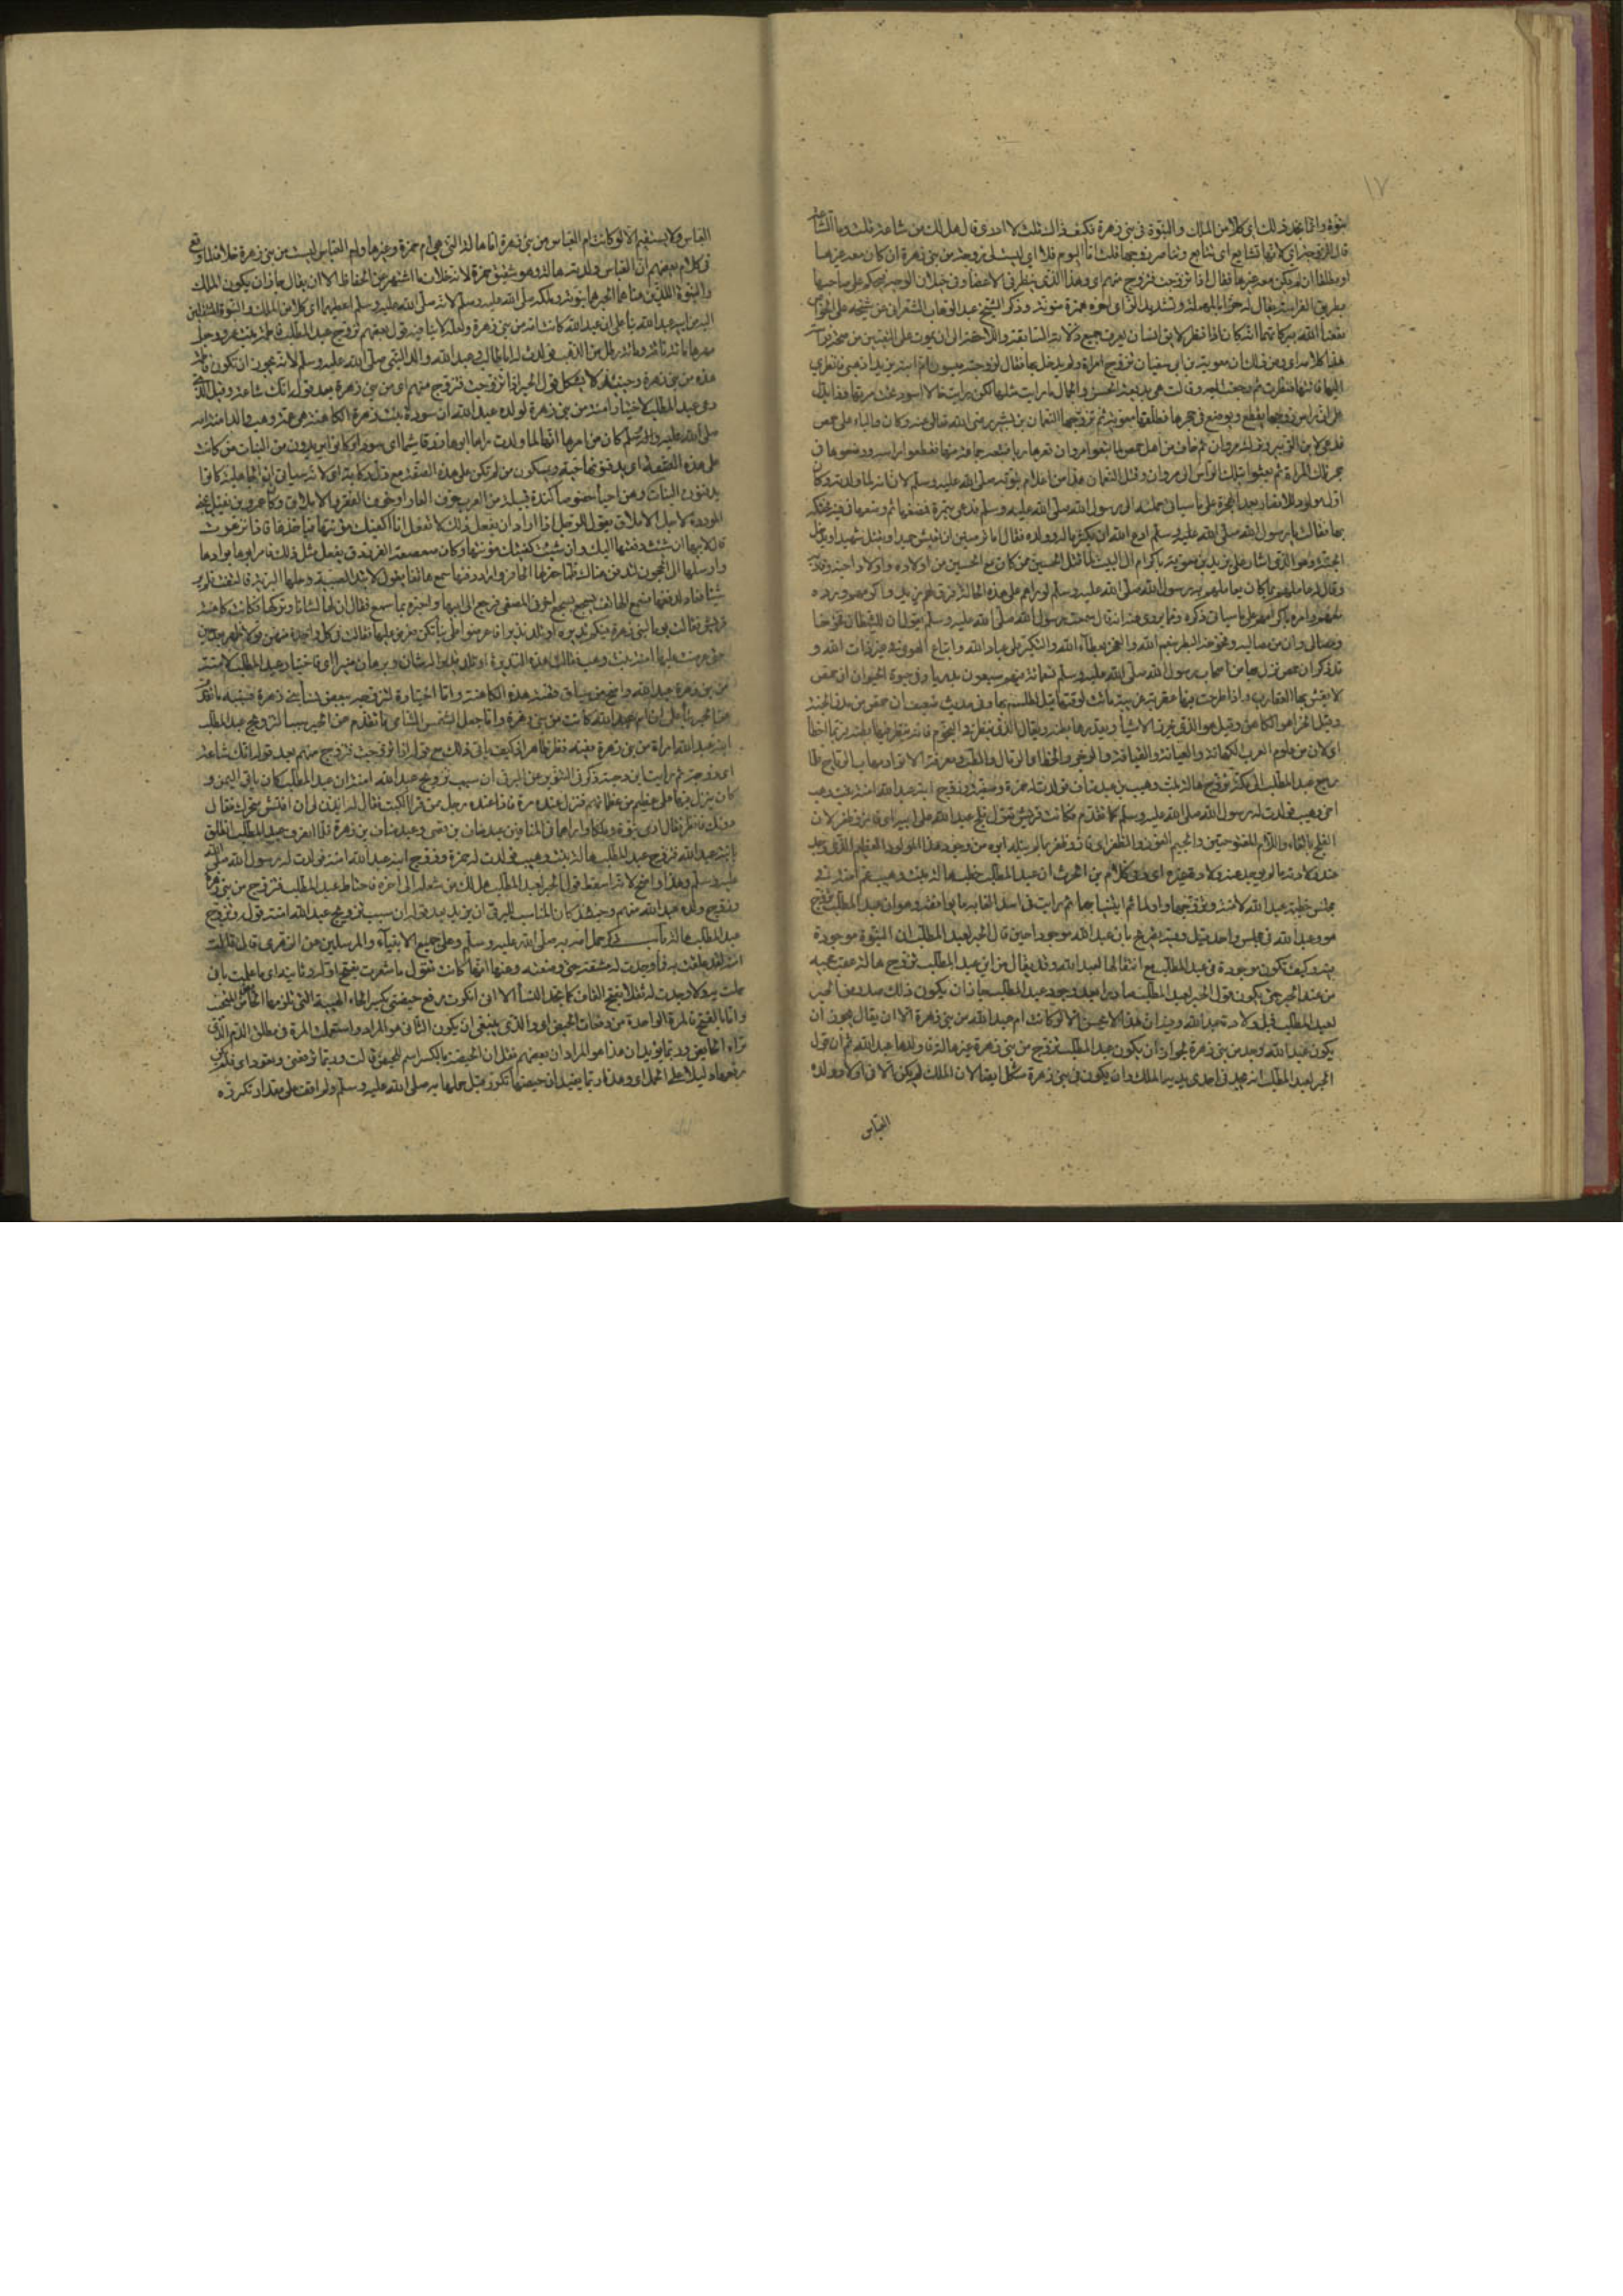 ١٧
نبوة وانما نجد ذلك اى كلا من الملك والنبوة فى بنى زهرة فكيف ذاك قلت لا ادرى قال هل لك من شاعة قلت وما الشاعة
قال الزوجة اى لانها تشايع اى تتابع وتناصر زوجها قلت اما اليوم فلا اى ليست لى زوجة من بنى زهرة ان كان معه غيرها
او مطلقا ان لم يكن معه غيرها فقال اذا تزوجت فتزوج منهم اى وهذا الذى ينظر فى الاعضاء وفى خيلان الوجه فيحكم على صاحبها
بطريق الفراسة يقال له حزاء بالمهملة وتشديد الزاى اخره همزة منونة وذكر الشيخ عبد الوهاب الشعرانى عن شيخه على الخواص
نفعنا الله ببركاتهما انه كان اذا نظر لانف انسان يعرف جميع زلاته السابقة واللاحقة الى ان يموت على التعيين من صحة فراسته
هذا كلامه اى ومن ذلك ان معوية بن ابى سفيان تزوج امراة ولم يدخل بها فقال لزوجته ميسون ام ابنه يزيد اذهبى فانظرى
اليها فاتتها فنظرت ثم رجعت اليه وقالت هى بديعة الحسن والجمال ما رايت مثلها لكن رايت خالا اسود تحت سرتها وذا يدل
على ان راس زوجها يقطع ويوضع فى حجرها فطلقها معوية ثم تزوجها النعمان بن بشير رضى الله تعالى عنه وكان واليا على حمص
فدعى لابن الزبير وترك مروان ثم خاف من اهل حمص لما تبعوا مروان ففر هاربا فتبعه جماعة منها فقطعوا راسه ووضعوها فى
حجر تلك المراة ثم بعثوا بتلك الراس الى مروان وقتل النعمان هذا من اعلام نبوته صلى الله عليه وسلم لان امه لما ولدته وكان
اول مولود للانصار بعد الهجرة على ما سياتى حملته الى رسول الله صلى الله عليه وسلم فدعى بتمرة فمضغها ثم وضعها فى فيه فحنكه
بها فقالت يا رسول الله صلى الله عليه وسلم ادع الله ان يكثر ماله وولده فقال اما ترضين ان يعيش حميدا ويقتل شهيدا ويدخل
الجنة وهو الذى اشار على يزيد بن معوية باكرام ال البيت لما قتل الحسين من كان مع الحسين من اولاده واولاد اخيه وقاربه
وقال له عاملهم بما كان يعاملهم به رسول الله صلى الله عليه وسلم لو راهم على هذه الحالة فرق لهم يزيد واكرمهم ورده
معهم وامره باكرامهم على ما سياتى ذكره ومما يروى عنه انه قال سمعت رسول الله صلى الله عليه وسلم يقول ان للشيطان فخوخا
ومصالى وان من مصاليه وفخوخه البطر بنعم الله والفخر بعطاء الله والتكبر على عباد الله واتباع الهوى فى غير ذات الله و
قد ذكر ان حمص نزل بها من اصحاب رسول الله صلى الله عليه وسلم تسعمائة منهم سبعون بدريا وفى حيوة الحيوان ان حمص
لا يعيش بها العقارب واذا طرحت فيها عقرب غريبة ماتت لوقتها قيل لطلسم بها وفى حديث ضعيف ان حمص من مدن الجنة
وقيل الحزاء هو الكاهن وقيل هو الذى يحزر الاشياء ويقدرها بظنه ويقال للذى ينظر فى النجوم فانه ينظر فيها بظنه فربما اخطا
اى لان من علوم العرب الكهانة والعيافة والقيافة والزجر والخط اى الرمال والطب ومعرفة الانواء ومهاب الرياح فلما
رجع عبد المطلب الى مكة تزوج هالة بنت وهيب بن عبد مناف فولدت له حمزة وصفية وزوج ابنه عبد الله امنة بنت وهب
اخى وهيب فولدت له رسول الله صلى الله عليه وسلم كما تقدم فكانت قريش تقول فلج عبد الله على ابيه اى فاز وظفر لان
الفلج بالفاء واللام المفتوحتين والجيم الفوز والظفر اى فاز وظفر بما لم ينله ابوه من وجود هذا المولود العظيم الذى وجد
عند ولادته ما لم يوجد عند ولادة غيره اى وفى كلام بن المحدث ان عبد المطلب خطب هالة بنت وهيب عم امنة فى
مجلس خطبة عبد الله لامنة وتزوجها واولما ثم ابتنيا بهما ثم رايت فى اسد الغابه ما يوافقه وهو ان عبد المطلب تزوج
هو وعبد الله فى مجلس واحد قيل وفيه تصريح بان عبد الله موجودا حين قال الحبر لعبد المطلب ان النبوة موجودة
فيه وكيف تكون موجودة فى عبد المطلب مع انتقالها لعبد الله وقد يقال من اين عبد المطلب تزوج هالة عقب مجيئه
من عند الحبر حتى يكون قول الحبر لعبد المطلب صادرا بعد وجود عبد المطلب جاز ان يكون ذلك صدر من الحبر
لعبد المطلب قبل ولادة عبد الله وفيه ان هذا لا يحسن الا لو كانت ام عبد الله من بنى زهرة الا ان يقال يجوز ان
يكون عبد الله وجد من بنى زهرة بجواز ان يكون عبد المطلب تزوج من بنى زهرة غير هالة فاولدها عبد الله ثم ان قول
الحبر لعبد المطلب انه يجد فى احدى يديه الملك وان يكون فى بنى زهرة مشكل ايضا لان الملك لم يكن الا فى اولاد ولده
العباس
العباس ولا يستقيم الا لو كانت ام العباس من بنى زهرة اما هالة التى هى ام حمزة وغيرها وام العباس ليست من بنى زهرة خلافا لما وقع
فى كلام بعضهم ان العباس ولدته هالة وهو شقيق حمزة لانه خلاف ما اشتهر عن الحفاظ الا ان يقال جاز ان يكون الملك
والنبوة اللذين عناهما الحبر هما نبوته وملكه صلى الله عليه وسلم لانه صلى الله عليه وسلم اعطيهما اى كلا من الملك والنبوة المنتقلين
اليه من ابيه عبد الله بناء على ان عبد الله كانت امه من بنى زهرة ولعله لا ينافيه قول بعضهم تزوج عبد المطلب فاطمة بنت عمرو وجعل
مهرها مائة ناقة ومائة رطل من الذهب فولدت له ابا طالب وعبد الله والد النبى صلى الله عليه وسلم لانه يجوز ان تكون فاطمة
هذه من بنى زهرة وحينئذ لا يشكل قول الحبر اذا تزوجت فتزوج منهم اى من بنى زهرة بعد قوله الك شاعة وقيل الذى
دعى عبد المطلب لاختيار امنة من بنى زهرة لولده عبد الله ان سودة بنت زهرة الكاهنة هى عمة وهب والد امنة امه
صلى الله عليه وسلم كان من امرها انها لما ولدت راها ابوها زرقا شيما اى سودا وكانوا يئدون من البنات من كانت
على هذه الصفة اى يدفنونها حية ويمسكون من لم تكن على هذه الصفة مع ذل وكابة اى لانه سياتى ان الجاهلية كانوا
يدفنون البنات وهن احياء خصوصا كندة قبيلة من العرب خوف العار او خوف الفقر والاملاق وكان عمرو بن نفيل يحيى
الموودة لاجل الاملاق يقول للرجل اذا اراد ان يفعل ذلك لا تفعل انا اكفيك مؤنتها فياخذها فاذا ترعرعت
قال لابيها ان شئت دفعتها اليك وان شئت كفيتك مؤنتها وكان صعصعة الفرزدق يفعل مثل ذلك فامر ابوها بوادها
وارسلها الى الحجون لتدفن هناك فلما حفر لها الحافر واراد دفنها سمع هاتفا يقول لا تئد الصبية وخلها البرية فالتفت فلم ير
شيئا فعاد لدفنها فسمع الهاتف يسجع بسجع اخر فى المعنى فرجع الى ابيها واخبره بما سمع فقال ان لها لشانا وتركها فكانت كاهنة
قريش فقالت يوما لبنى زهرة فيكم نذيرة او تلد نذيرا فاعرضوا على بناتكم فعرضن عليها فقالت فى كل واحدة منهن قولا ظهر بعد حين
حتى عرضت عليها امنة بنت وهب فقالت هذه النذيرة او تلد نذيرا له شان وبرهان منير اى فاختيار عبد المطلب لامنة
من بنى زهرة عبد الله واضح من سياق قصة هذه الكاهنة واما اختياره لتزوجه ببعض نساء بنى زهرة فسببه ما تقدم
عن الحبر بناء على ان ام عبد الله كانت من بنى زهرة واما جعل الشمس الشامى ما تقدم عن الحبر سببا لتزويج عبد المطلب
ابنه عبد الله امراة من بنى زهرة ففيه نظر ظاهر اذ كيف ياتى ذلك مع قوله اذا تزوجت فتزوج منهم بعد قوله الك شاعة
اى زوجة ثم رايت ابن دحية ذكر فى التنوير عن البرقى ان سبب تزويج عبد الله امنة ان عبد المطلب كان ياتى اليمن و
كان ينزل فيها على عظيم من عظمائهم فنزل عنده مرة فاذا عنده رجل ممن قرا الكتب فقال له ايذن لى ان افتش منخرك فقال
دونك فانظر فقال ارى نبوة وملكا واراهما فى المنافين عبد مناف بن قصى وعبد مناف بن زهرة فلما انصرف عبد المطلب انطلق
بابنه عبد الله فتزوج عبد المطلب هالة بنت وهيب فولدت له حمزة وزوج ابنه عبد الله امنة فولدت له رسول الله صلى الله
عليه وسلم وهذا واضح لانه اسقط قول الحبر لعبد المطلب هل لك من شاعة الى اخره فاحتاط عبد المطلب فتزوج من بنى زهرة
وزوج ولده عبد الله منهم وحينئذ كان المناسب للبرقى ان يزيد بعد قوله ان سبب تزويج عبد الله امنة قوله وتزوج
عبد المطلب هالة باب ذكر حمل امه به صلى الله عليه وسلم وعلى جميع الانبياء والمرسلين عن الزهرى قال قالت
امنة لقد علقت به فما وجدت له مشقة حتى وضعته وعنها انها كانت تقول ما شعرت بفتح اوله وثانيه اى ما علمت بانى
حملت به ولا وجدت له ثقلا بفتح القاف كما تجد النساء الا انى انكرت رفع حيضتى بكسر الحاء الهيئة التى تلزمها الحائض للتجنب
واما بالفتح فالمرة الواحدة من دفعات الحيض اى والذى ينبغى ان يكون الثانى هو المراد واستعملت المرة فى مطلق الدم الذى
تراه الحائض وربما يؤيد ان هذا هو المراد ان بعضهم نقل ان الحيضة بالكسر اسم للحيض قالت وربما ترفعنى وتعود اى فلم يكن
رفعها دليلا على الحمل اى وهذا ربما يفيد ان حيضتها تكرر قبل حملها به صلى الله عليه وسلم ولم اقف على مقدار تكرره